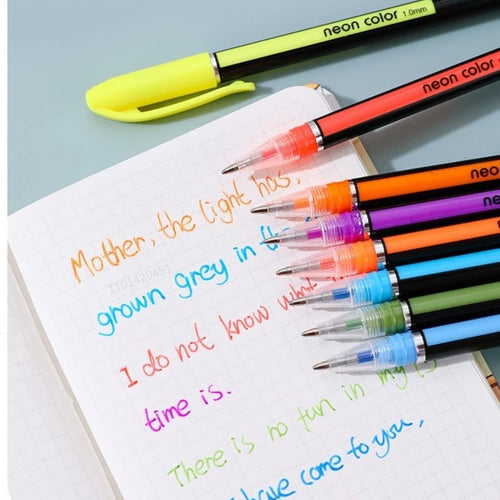 neon color 1.0mm
neon color
neon
neo
neo
Mother, the light has,
grown grey in the
1101420451
I do not know what
time is.
There is no fun in my
have come to you,